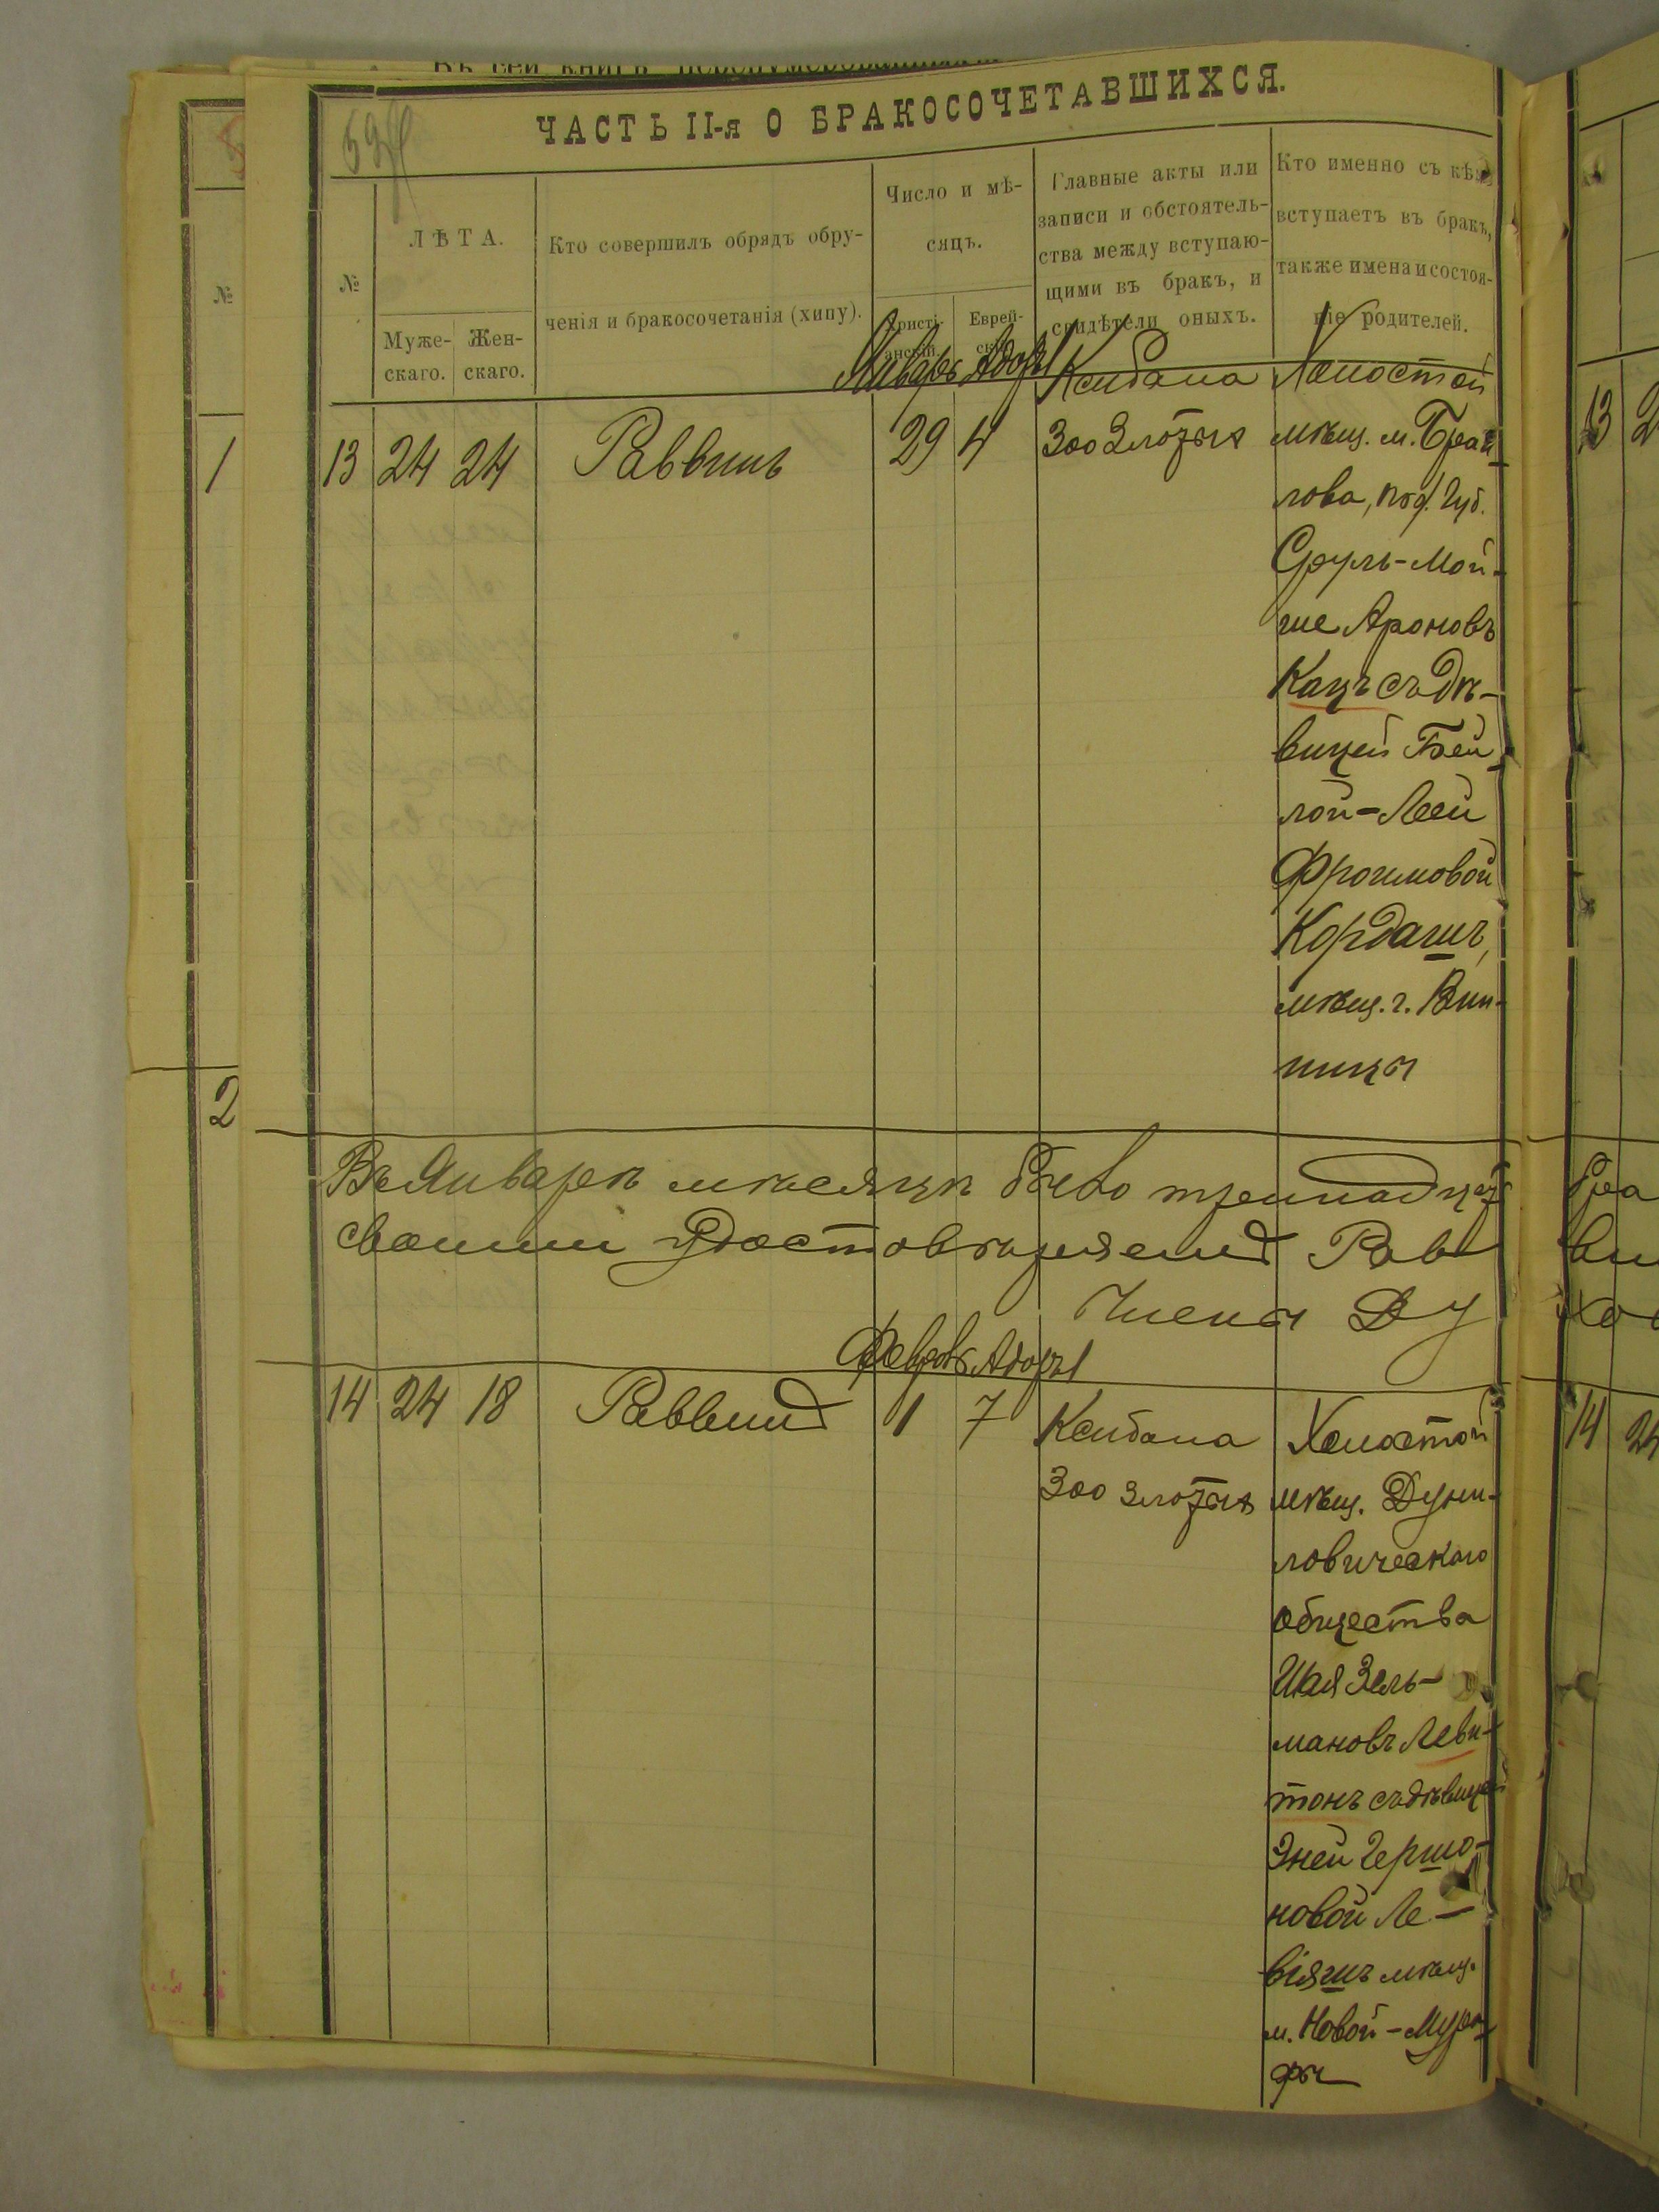 ЧАСТЬ II-я О БРАКОСОЧЕТАВШИХСЯ.
№
ЛѢТА.
Муже-
скаго.
Жен-
скаго.
Кто совершилъ обрядъ обру-
ченія и бракосочетанія (хипу).
Число и мѣ-
сяцъ.
Христі-
анскій.
Еврей-
скій.
Главные акты или
записи и обстоятель-
ства между вступаю-
щими въ бракъ, и
свидѣтели оныхъ.
Кто именно съ кѣмъ
вступаетъ въ бракъ,
также имена и состоя-
ніе родителей.
Январь Адоръ I
13 24 24 Раввинъ 29 4
Ксибана
300 Злотыхъ
Холостой
мѣщ. м. Браи-
лова, Под. Губ.
Сруль-Мой-
ше Ароновъ
Кацъ съ дѣ-
вицей Бей-
лой-Леей
Фроимовой
Кордашъ,
мѣщ. г. Вин-
ницы
Въ Январѣ мѣсяцѣ всево тринадцать
своими удостовѣряемъ Рав
Члены ДУ
Февраль Адоръ I
14 24 18 Раввинъ 1 7
Ксибана
300 злотыхъ
Холостой
мѣщ. Дуни-
ловическаго
общества
Шая Зель-
мановъ Леви-
тонъ съ дѣвицей
Эней Гершо-
новой Ле-
віяшъ мѣщ.
м. Новой-Мура-
фы
1
2
№
13
14 24